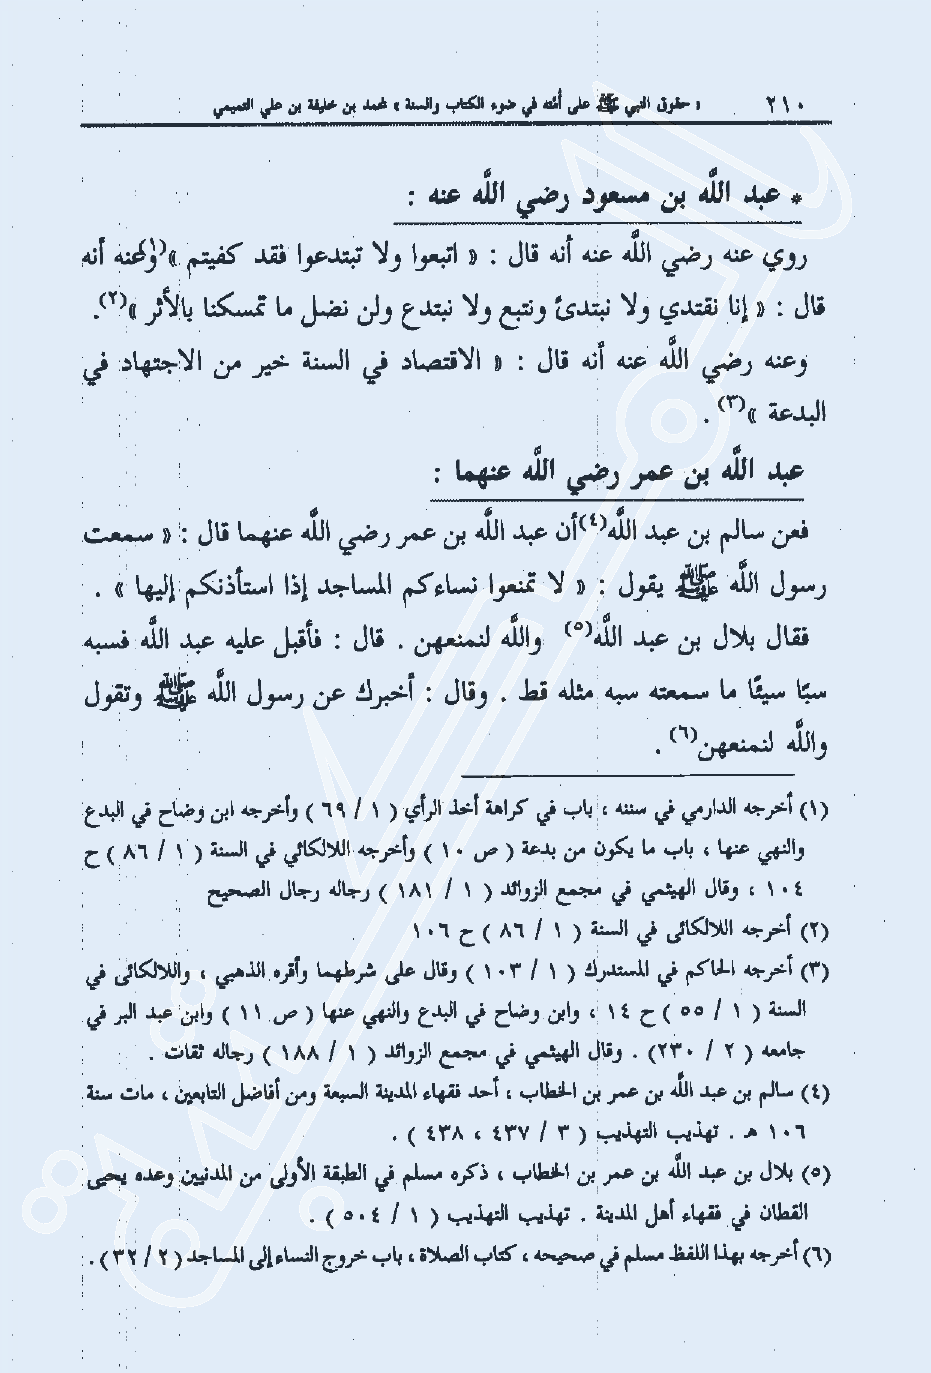 ٢١٠ « حقوق النبي ﷺ على أمته في ضوء الكتاب والسنة » محمد بن خليفة بن علي التميمي
* عبد اللَّه بن مسعود رضي اللَّه عنه :
روي عنه رضي اللَّه عنه أنه قال : « اتبعوا ولا تبتدعوا فقد كفيتم »(١) وعنه أنه
قال : « إنا نقتدي ولا نبتدئ ونتبع ولا نبتدع ولن نضل ما تمسكنا بالأثر »(٢).
وعنه رضي اللَّه عنه أنه قال : « الاقتصاد في السنة خير من الاجتهاد في
البدعة »(٣) .
عبد اللَّه بن عمر رضي اللَّه عنهما :
فعن سالم بن عبد اللَّه(٤) أن عبد اللَّه بن عمر رضي اللَّه عنهما قال : « سمعت
رسول اللَّه ﷺ يقول : « لا تمنعوا نساءكم المساجد إذا استأذنكم إليها » .
فقال بلال بن عبد اللَّه(٥) واللَّه لنمنعهن . قال : فأقبل عليه عبد اللَّه فسبه
سبًا سيئًا ما سمعته سبه مثله قط . وقال : أخبرك عن رسول اللَّه ﷺ وتقول
واللَّه لنمنعهن(٦) .
(١) أخرجه الدارمي في سننه ، باب في كراهة أخذ الرأي ( ١ / ٦٩ ) وأخرجه ابن وضاح في البدع
والنهي عنها ، باب ما يكون من بدعة ( ص ١٠ ) وأخرجه اللالكائي في السنة ( ١ / ٨٦ ) ح
١٠٤ ، وقال الهيثمي في مجمع الزوائد ( ١ / ١٨١ ) رجاله رجال الصحيح
(٢) أخرجه اللالكائى في السنة ( ١ / ٨٦ ) ح ١٠٦
(٣) أخرجه الحاكم في المستدرك ( ١ / ١٠٣ ) وقال على شرطهما وأقره الذهبي ، واللالكائى في
السنة ( ١ / ٥٥ ) ح ١٤ ، وابن وضاح في البدع والنهي عنها ( ص ١١ ) وابن عبد البر في
جامعه ( ٢ / ٢٣٠) . وقال الهيثمي في مجمع الزوائد ( ١ / ١٨٨ ) رجاله ثقات .
(٤) سالم بن عبد اللَّه بن عمر بن الخطاب ، أحد فقهاء المدينة السبعة ومن أفاضل التابعين ، مات سنة
١٠٦ هـ . تهذيب التهذيب ( ٣ / ٤٣٧ ، ٤٣٨ ) .
(٥) بلال بن عبد اللَّه بن عمر بن الخطاب ، ذكره مسلم في الطبقة الأولى من المدنيين وعده يحيى
القطان في فقهاء أهل المدينة . تهذيب التهذيب ( ١ / ٥٠٤ ) .
(٦) أخرجه بهذا اللفظ مسلم في صحيحه ، كتاب الصلاة ، باب خروج النساء إلى المساجد ( ٢ / ٣٢ ) .